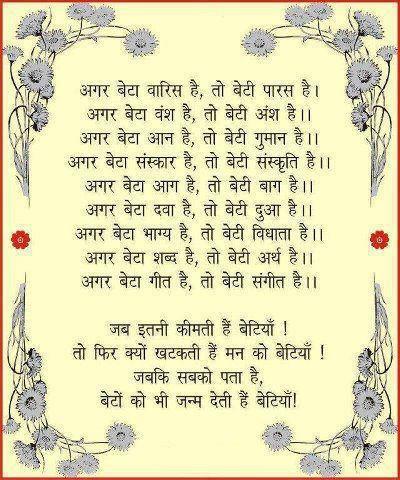 अगर बेटा वारिस है, तो बेटी पारस है।
अगर बेटा वंश है, तो बेटी अंश है।।
अगर बेटा आन है, तो बेटी गुमान है।।
अगर बेटा संस्कार है, तो बेटी संस्कृति है।।
अगर बेटा आग है, तो बेटी बाग है।।
अगर बेटा दवा है, तो बेटी दुआ है।।
अगर बेटा भाग्य है, तो बेटी विधाता है।।
अगर बेटा शब्द है, तो बेटी अर्थ है।।
अगर बेटा गीत है, तो बेटी संगीत है।।
जब इतनी कीमती हैं बेटियाँ !
तो फिर क्यों खटकती हैं मन को बेटियाँ !
जबकि सबको पता है,
बेटों को भी जन्म देती हैं बेटियाँ!